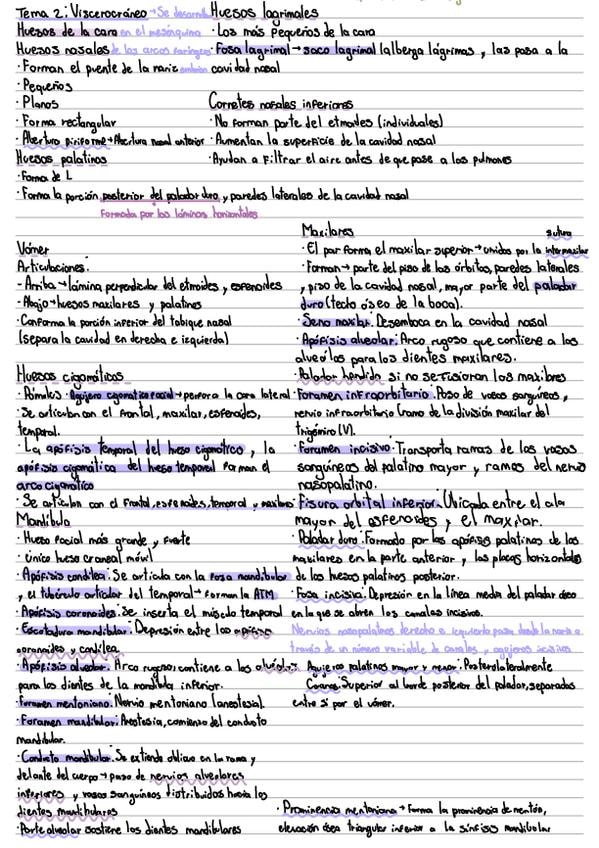 Tema 2: Viscerocráneo → Se desarrolla
Huesos de la cara en el mesénquima
Huesos nasales de los arcos faríngeos
· Forman el puente de la nariz
· Pequeños
· Planos
· Forma rectangular
· Abertura piriforme → Abertura nasal anterior
Huesos palatinos
· Forma de L
· Forma la porción posterior del paladar duro, y paredes laterales de la cavidad nasal
Formada por las láminas horizontales
Huesos lagrimales
· Los más pequeños de la cara
· Fosa lagrimal → saco lagrimal (alberga lágrimas, las pasa a la
cavidad nasal
Cornetes nasales inferiores
· No forman parte del etmoides (individuales)
· Aumentan la superficie de la cavidad nasal
· Ayudan a filtrar el aire antes de que pase a los pulmones
Vómer
Articulaciones:
- Arriba → lámina perpendicular del etmoides y esfenoides
- Abajo → huesos maxilares y palatinos
· Conforma la porción inferior del tabique nasal
(separa la cavidad en derecha e izquierda)
Huesos cigomáticos
· Pómulos · Agujero cigomaticofacial → perfora la cara lateral
· Se articulan con el frontal, maxilar, esfenoides,
temporal.
· La apófisis temporal del hueso cigomático, la
apófisis cigomática del hueso temporal forman el
arco cigomático
· Se articulan con el frontal, esfenoides, temporal y maxilar
Mandíbula
· Hueso facial más grande y fuerte
· Único hueso craneal móvil
· Apófisis condílea: Se articula con la fosa mandibular
, y el tubérculo articular del temporal → forman la ATM
· Apófisis coronoides: Se inserta el músculo temporal
· Escotadura mandibular: Depresión entre las apófisis
coronoides y condílea.
· Apófisis alveolar: Arco rugoso, contiene a los alvéolos
para los dientes de la mandíbula inferior.
· Foramen mentoniano: Nervio mentoniano (anestesia).
· Foramen mandibular: Anestesia, comienzo del conducto
mandibular.
· Conducto mandibular: Se extiende oblicuo en la rama y
delante del cuerpo → paso de nervios alveolares
inferiores y vasos sanguíneos distribuidos hacia los
dientes mandibulares
· Parte alveolar sostiene los dientes mandibulares
Maxilares
sutura
· El par forma el maxilar superior → unidos por la intermaxilar
· Forman → parte del piso de las órbitas, paredes laterales
, y piso de la cavidad nasal, mayor parte del paladar
duro (techo óseo de la boca).
· Seno maxilar: Desemboca en la cavidad nasal
· Apófisis alveolar: Arco rugoso que contiene a los
alveólos para los dientes maxilares.
· Paladar hendido si no se fusioran los maxilares
· Foramen infraorbitario: Paso de vasos sanguíneos y
nervio infraorbitario (ramo de la división maxilar del
trigémino (V).
· Foramen incisivo: Transporta ramas de los vasos
sanguíneos del palatino mayor y ramos del nervio
nasopalatino.
· Fisura orbital inferior: Ubicada entre el ala
mayor del esfenoides y el maxilar.
· Paladar duro: Formado por las apófisis palatinas de los
maxilares en la parte anterior, y las placas horizontales
de los huesos palatinos posterior.
· Fosa incisiva: Depresión en la línea media del paladar óseo
en la que se abren los canales incisivos.
Nervios nasopalatinos derecho e izquierdo pasan desde la nariz a
través de un número variable de canales y agujeros incisivos
Agujeros palatinos mayor y menor: Posterolateralmente
Coana: Superior al borde posterior del paladar, separadas
entre sí por el vómer.
· Prominencia mentoniana → Forma la prominencia de mentón,
elevación ósea triangular inferior a la sínfisis mandibular